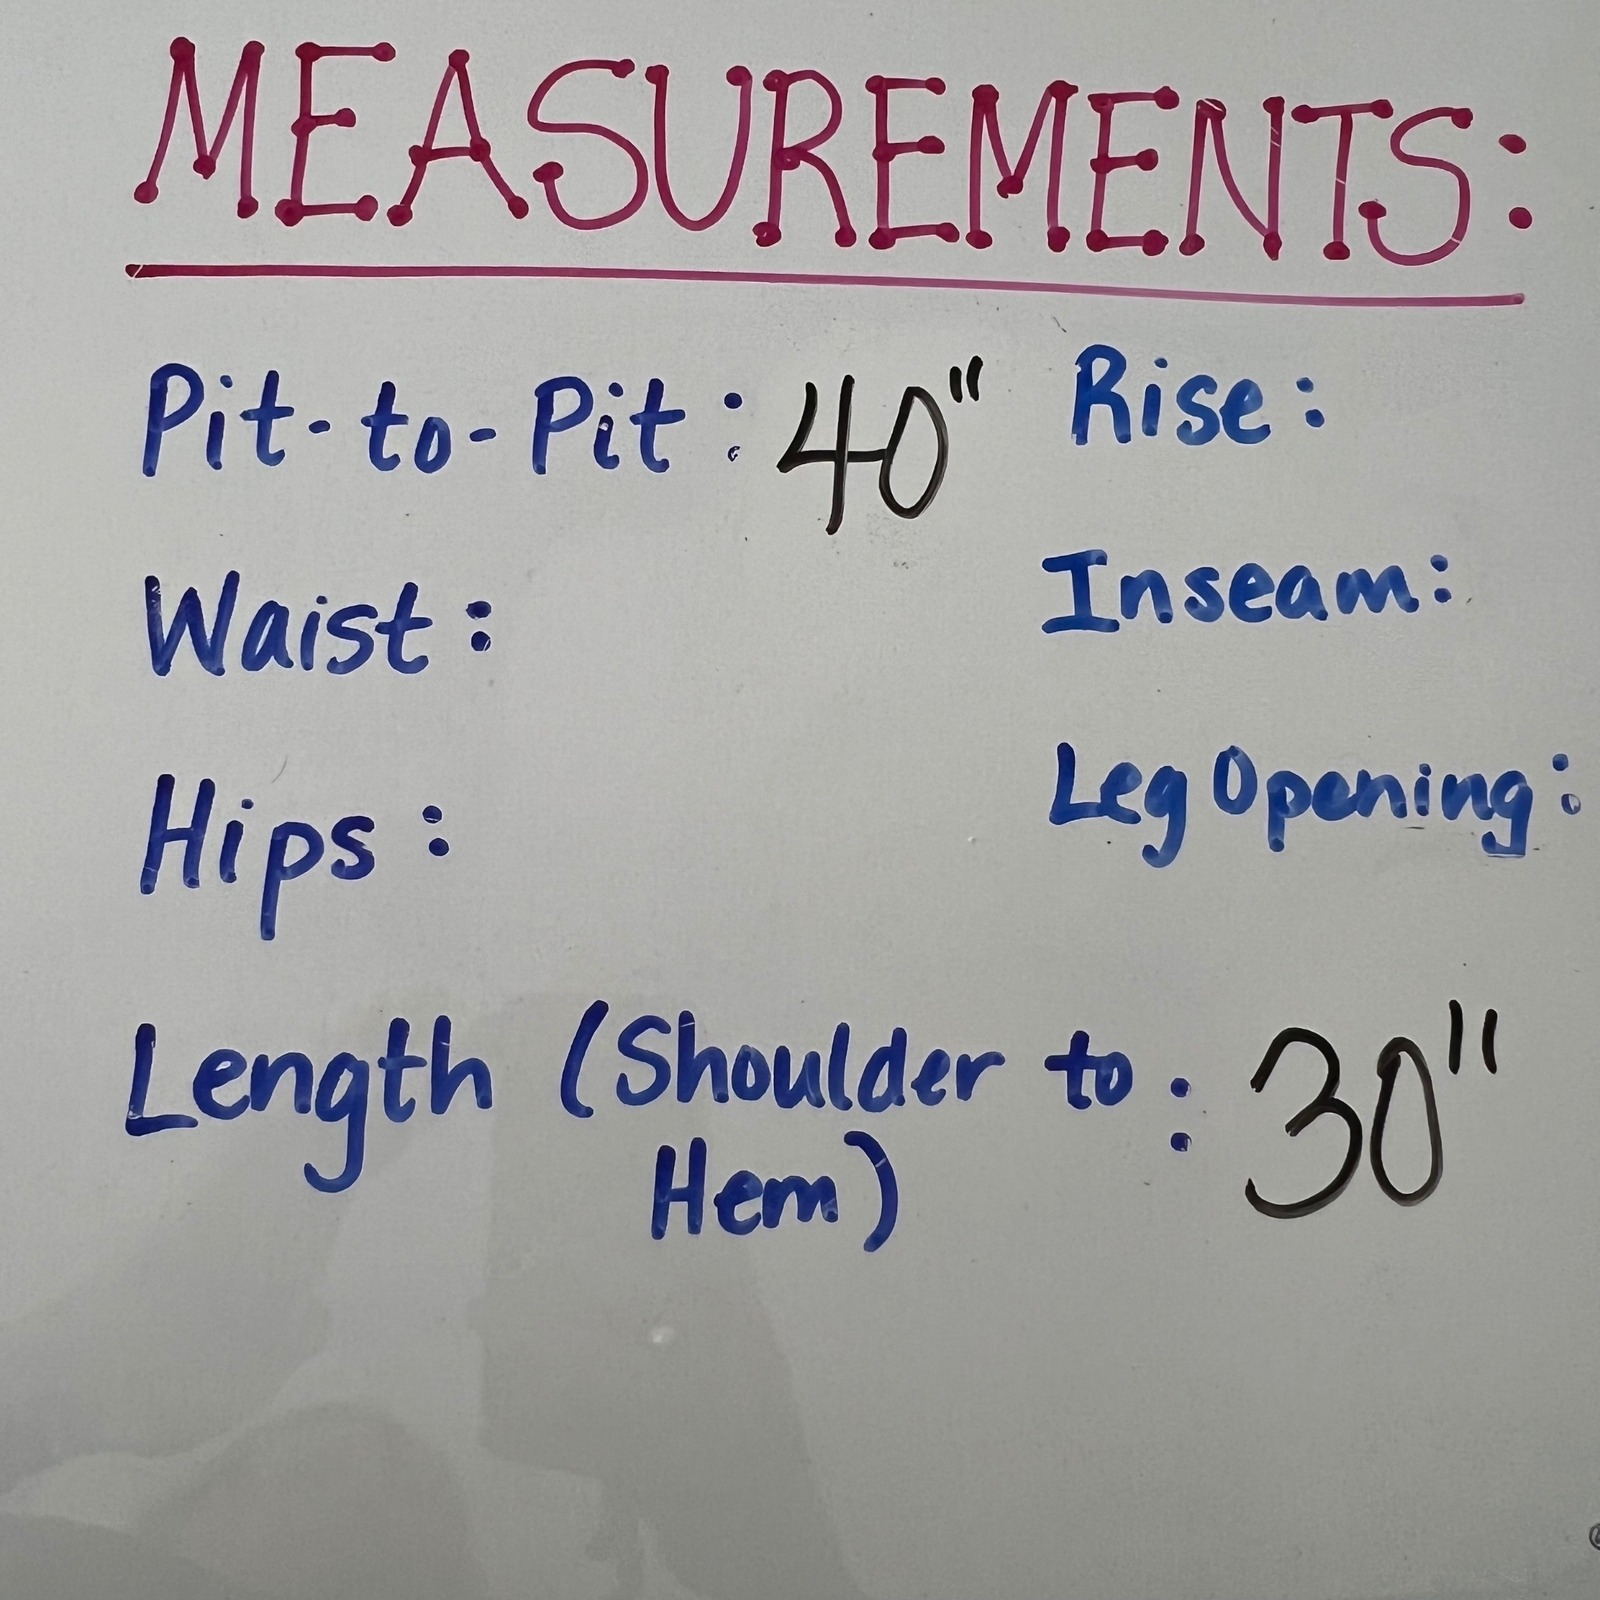 MEASUREMENTS:
Pit-to-Pit: 40"
Rise:
Waist:
Inseam:
Hips:
Leg Opening:
Length (Shoulder to : 30"
Hem)